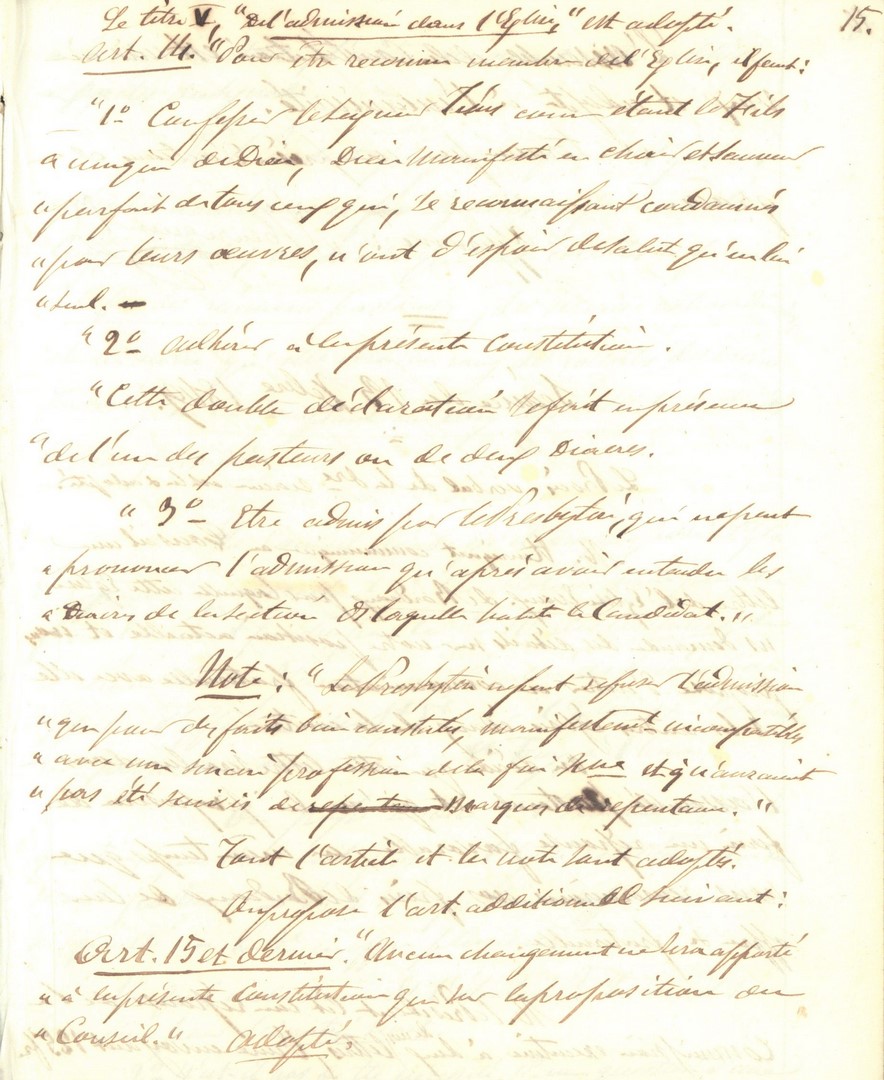 15.
Le titre V, "de l'admission dans l'Eglise," est adopté.
Art. 14. "Pour être reconnu membre de l'Eglise, il faut:
"1° Confesser le Seigneur Jésus comme étant le Fils
"unique de Dieu, Dieu manifesté en chair et Sauveur
"parfait de tous ceux qui, se reconnaissant condamnés
"pour leurs œuvres, n'ont d'espoir de salut qu'en lui
"seul. —
"2° adhérer à la présente Constitution.
"Cette double déclaration se fait en présence
"de l'un des pasteurs ou de deux Diacres.
"3° Etre admis par le Presbytère, qui ne peut
"prononcer l'admission qu'après avoir entendu les
"Diacres de la section dans laquelle habite le Candidat."
Note: "Le Presbytère ne peut refuser l'admission
"que pour des faits bien constatés, manifestement incompatibles
"avec une sincère profession de la foi Xnne et qui n'auraient
"pas été suivis de repentance marques de repentance."
Tout l'article et la note sont adoptés.
On propose l'art. additionnel suivant:
Art. 15 et dernier. "Aucun changement ne sera apporté
"à la présente Constitution que sur la proposition du
"Conseil." adopté.